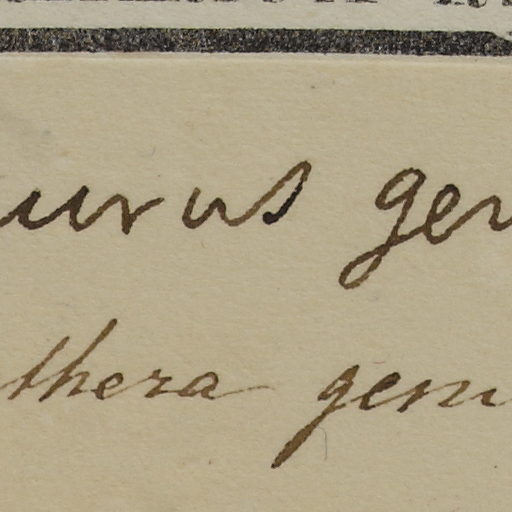 urus gen
thera gemi